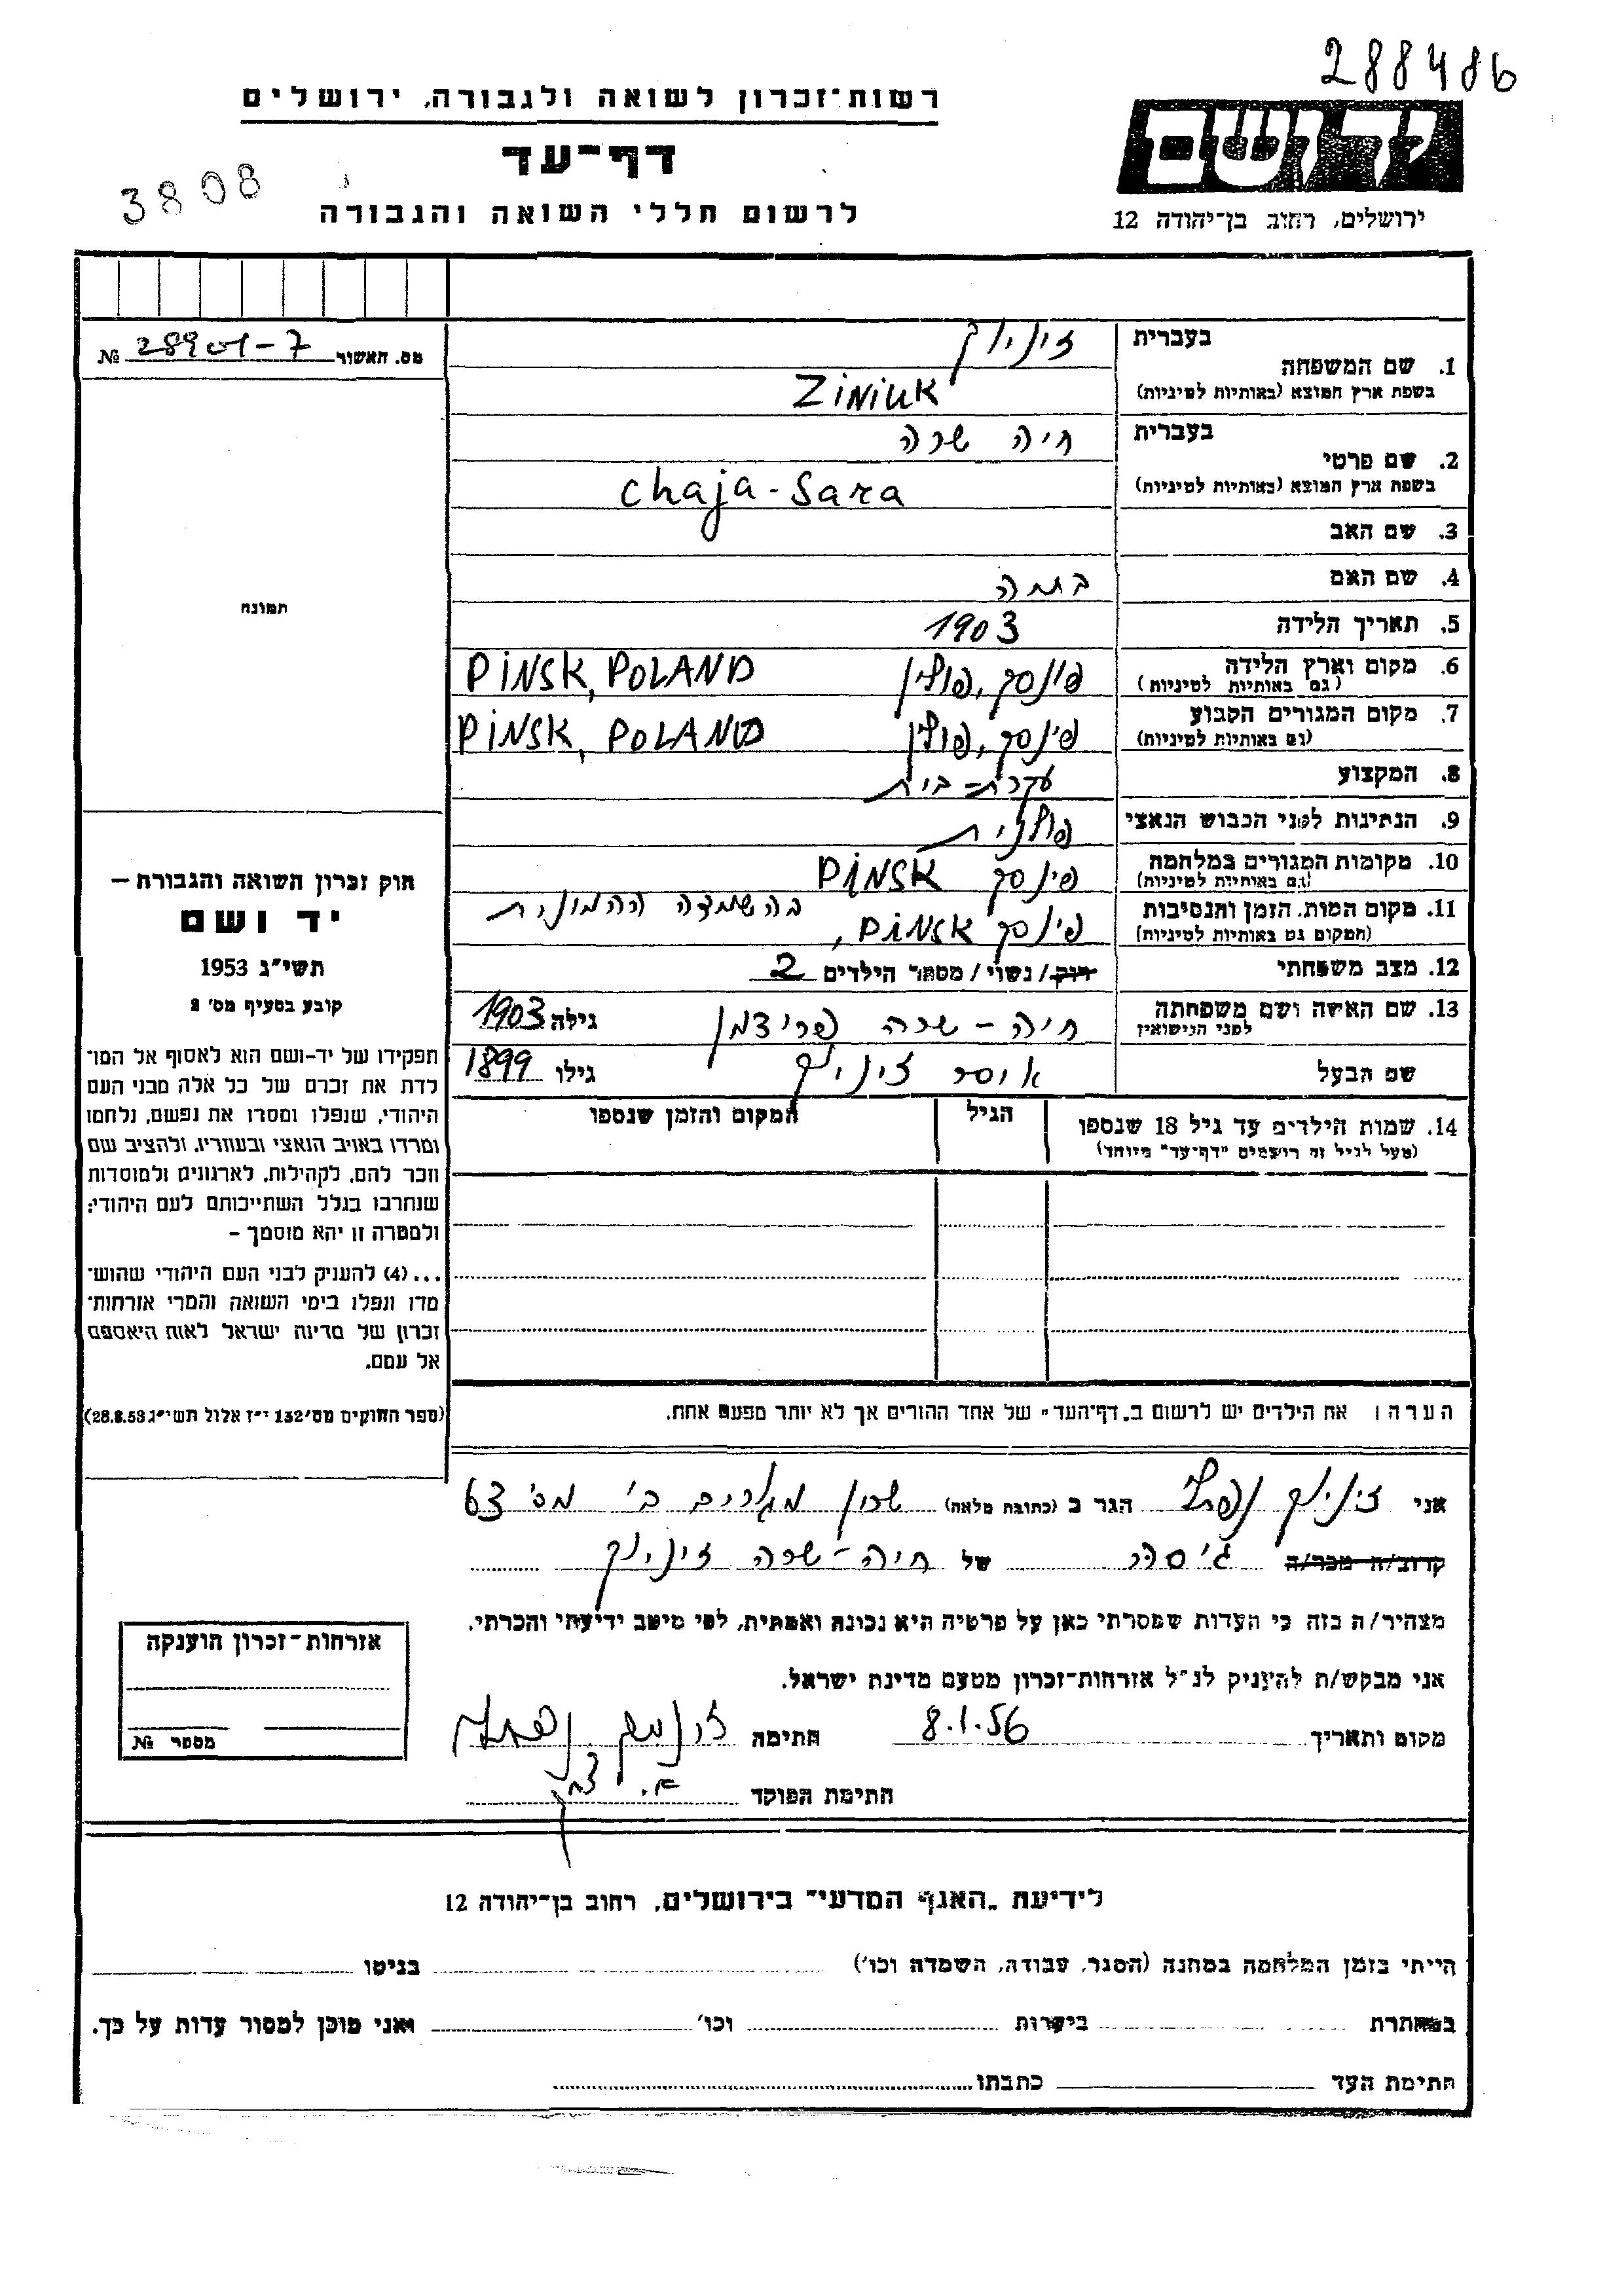 288486
רשות־זכרון לשואה ולגבורה, ירושלים
דף־עד
3808
לרשום חללי השואה והגבורה
יד ושם
ירושלים, רחוב בן־יהודה 12
מס. האשור 28901-7 №
תמונה
חוק זכרון השואה והגבורה —
יד ושם
תשי"ג 1953
קובע בסעיף מס' 2
תפקידו של יד-ושם הוא לאסוף אל המו־
לדת את זכרם של כל אלה מבני העם
היהודי, שנפלו ומסרו את נפשם, נלחמו
ומרדו באויב הנאצי ובעוזריו, ולהציב שם
וזכר להם, לקהילות, לארגונים ולמוסדות
שנחרבו בגלל השתייכותם לעם היהודי;
ולמטרה זו יהא מוסמך –
...(4) להעניק לבני העם היהודי שהוש־
מדו ונפלו בימי השואה והמרי אזרחות־
זכרון של מדינת ישראל לאות היאספם
אל עמם.
(ספר החוקים מס' 132 י"ז אלול תשי"ג 28.8.53)
בעברית זיניוק
1. שם המשפחה
בשפת ארץ המוצא (באותיות לטיניות) ZINIUK
בעברית חיה שרה
2. שם פרטי
בשפת ארץ המוצא (באותיות לטיניות) Chaja-Sara
3. שם האב
4. שם האם
5. תאריך הלידה 1903
6. מקום וארץ הלידה פינסק, פולין PINSK, POLAND
(גם באותיות לטיניות)
7. מקום המגורים הקבוע פינסק, פולין PINSK, POLAND
(גם באותיות לטיניות)
8. המקצוע עקרת-בית
9. הנתינות לפני הכבוש הנאצי פולנית
10. מקומות המגורים במלחמה פינסק PINSK
(גם באותיות לטיניות)
11. מקום המות, הזמן והנסיבות פינסק PINSK, בהשמדה ההמונית
(המקום גם באותיות לטיניות)
12. מצב משפחתי רווק/ נשוי/ מספר הילדים 2
13. שם האשה ושם משפחתה חיה-שרה פרידמן גילה 1903
לפני הנישואין
שם הבעל זיניוק גילו 1899
14. שמות הילדים עד גיל 18 שנספו הגיל המקום והזמן שנספו
(מעל לגיל זה רושמים "דף־עד" מיוחד)
הערה: את הילדים יש לרשום ב"דף־העד" של אחד ההורים אך לא יותר מפעם אחת.
אני זיניוק נפתלי הגר ב (כתובת מלאה) שכון מגורים ב' מס' 63
קרוב/ה מכר/ה גיסה של חיה-שרה זיניוק
מצהיר/ה בזה כי העדות שמסרתי כאן על פרטיה היא נכונה ואמתית, לפי מיטב ידיעתי והכרתי.
אני מבקש/ת להעניק לנ"ל אזרחות־זכרון מטעם מדינת ישראל.
מקום ותאריך 8.1.56 חתימה זיניוק נפתלי
חתימת הפוקד
אזרחות־זכרון הוענקה
מספר №
לידיעת "האגף המדעי" בירושלים, רחוב בן־יהודה 12
הייתי בזמן המלחמה במחנה (הסגר, עבודה, השמדה וכו') בגיטו
במחתרת ביערות וכו' ואני מוכן למסור עדות על כך.
חתימת העד כתבתו